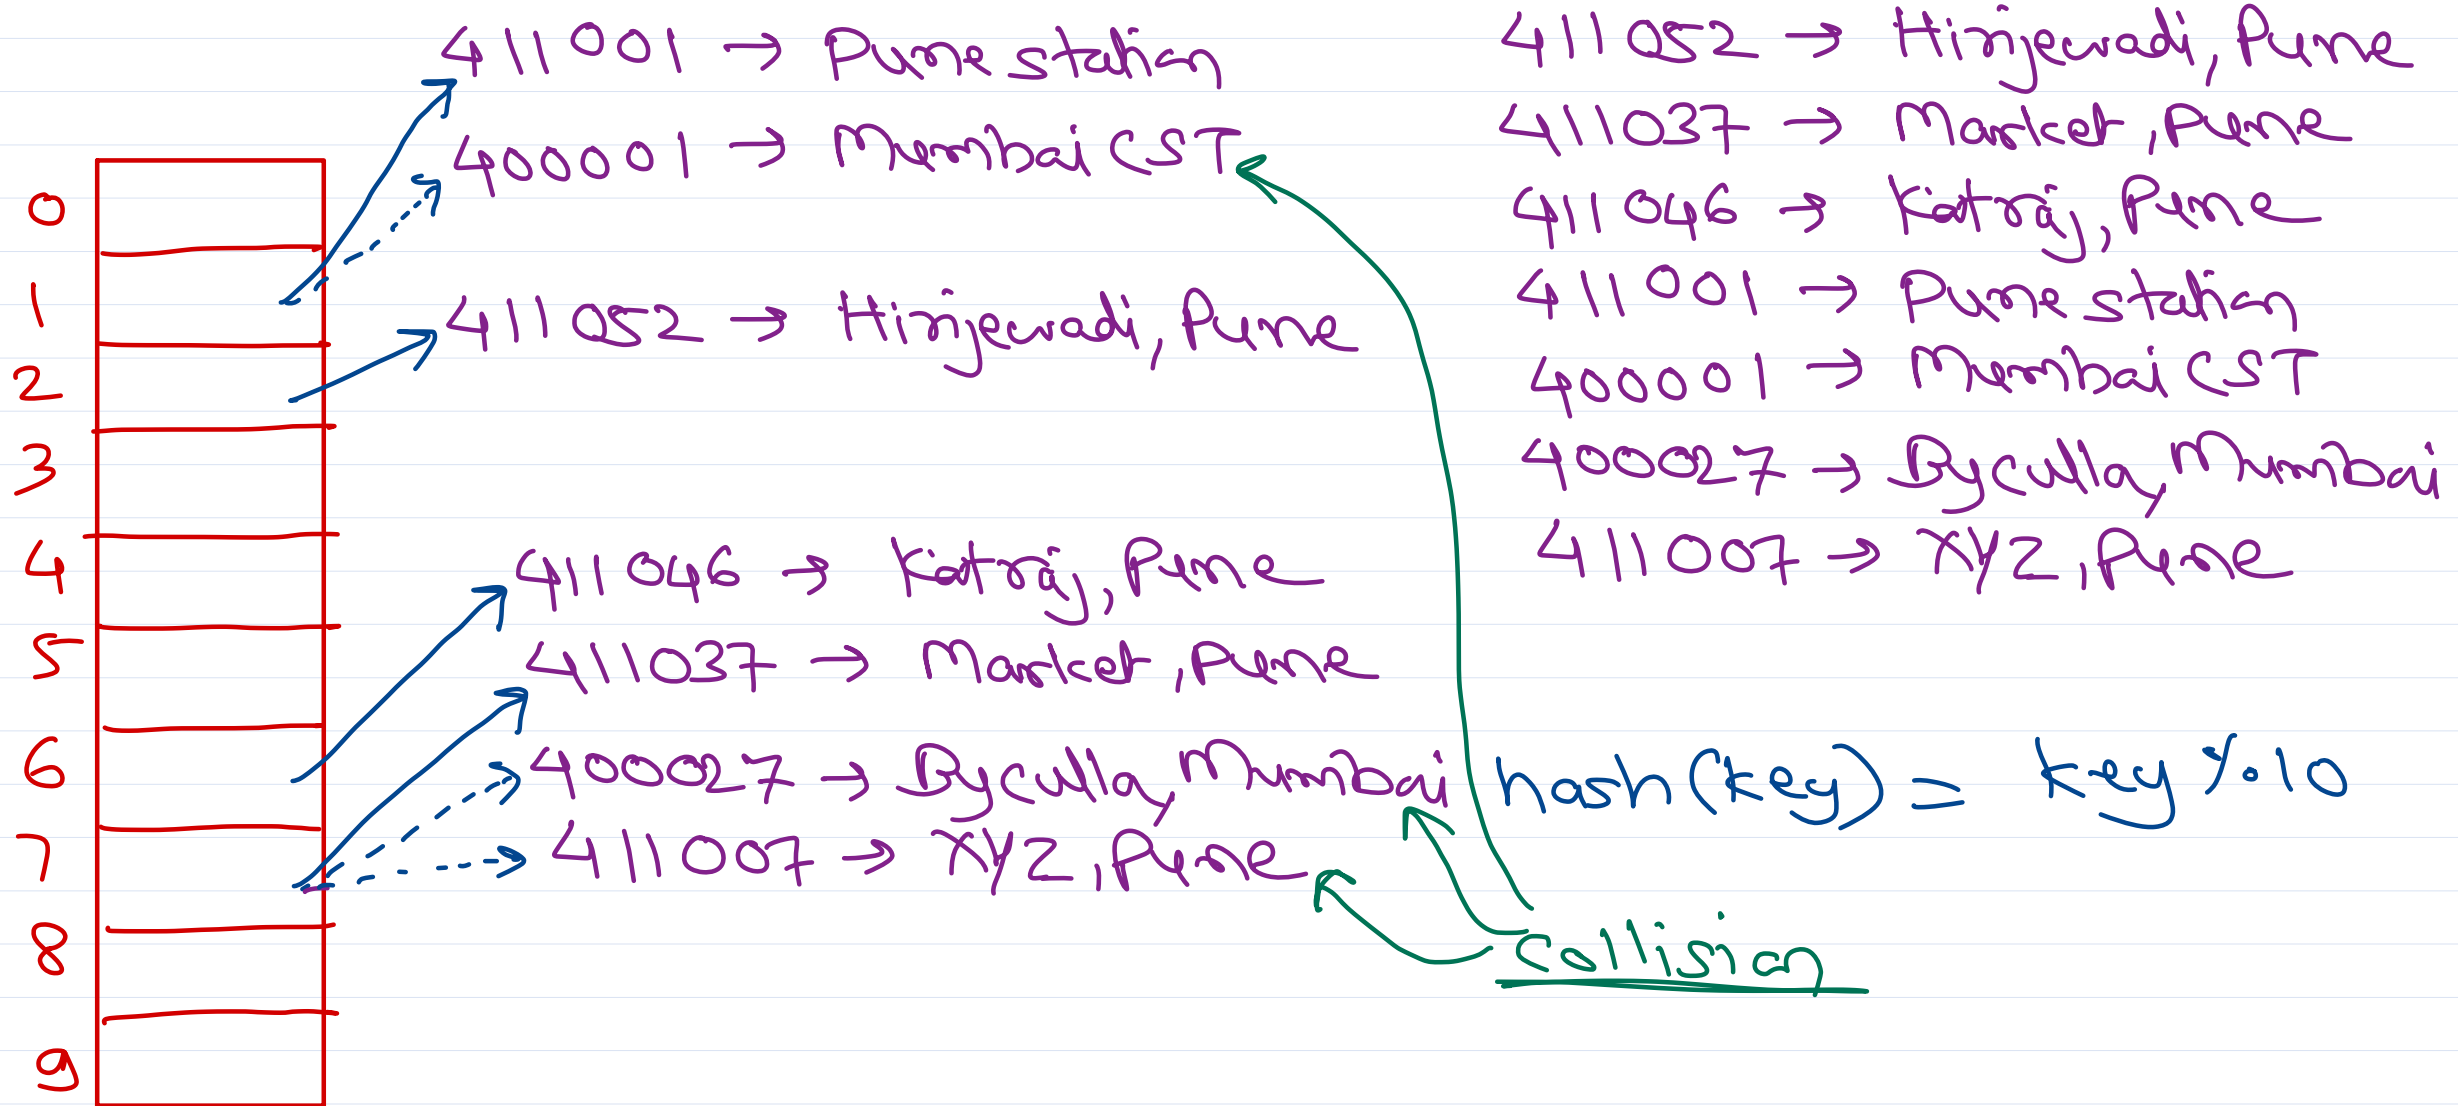 411001 → Pune station
400001 → Mumbai CST
411052 → Hinjewadi, Pune
411046 → Katraj, Pune
411037 → Market, Pune
400027 → Byculla, Mumbai
411007 → XYZ, Pune
0
1
2
3
4
5
6
7
8
9
411052 → Hinjewadi, Pune
411037 → Market, Pune
411046 → Katraj, Pune
411001 → Pune station
400001 → Mumbai CST
400027 → Byculla, Mumbai
411007 → XYZ, Pune
hash(key) = key % 10
Collision